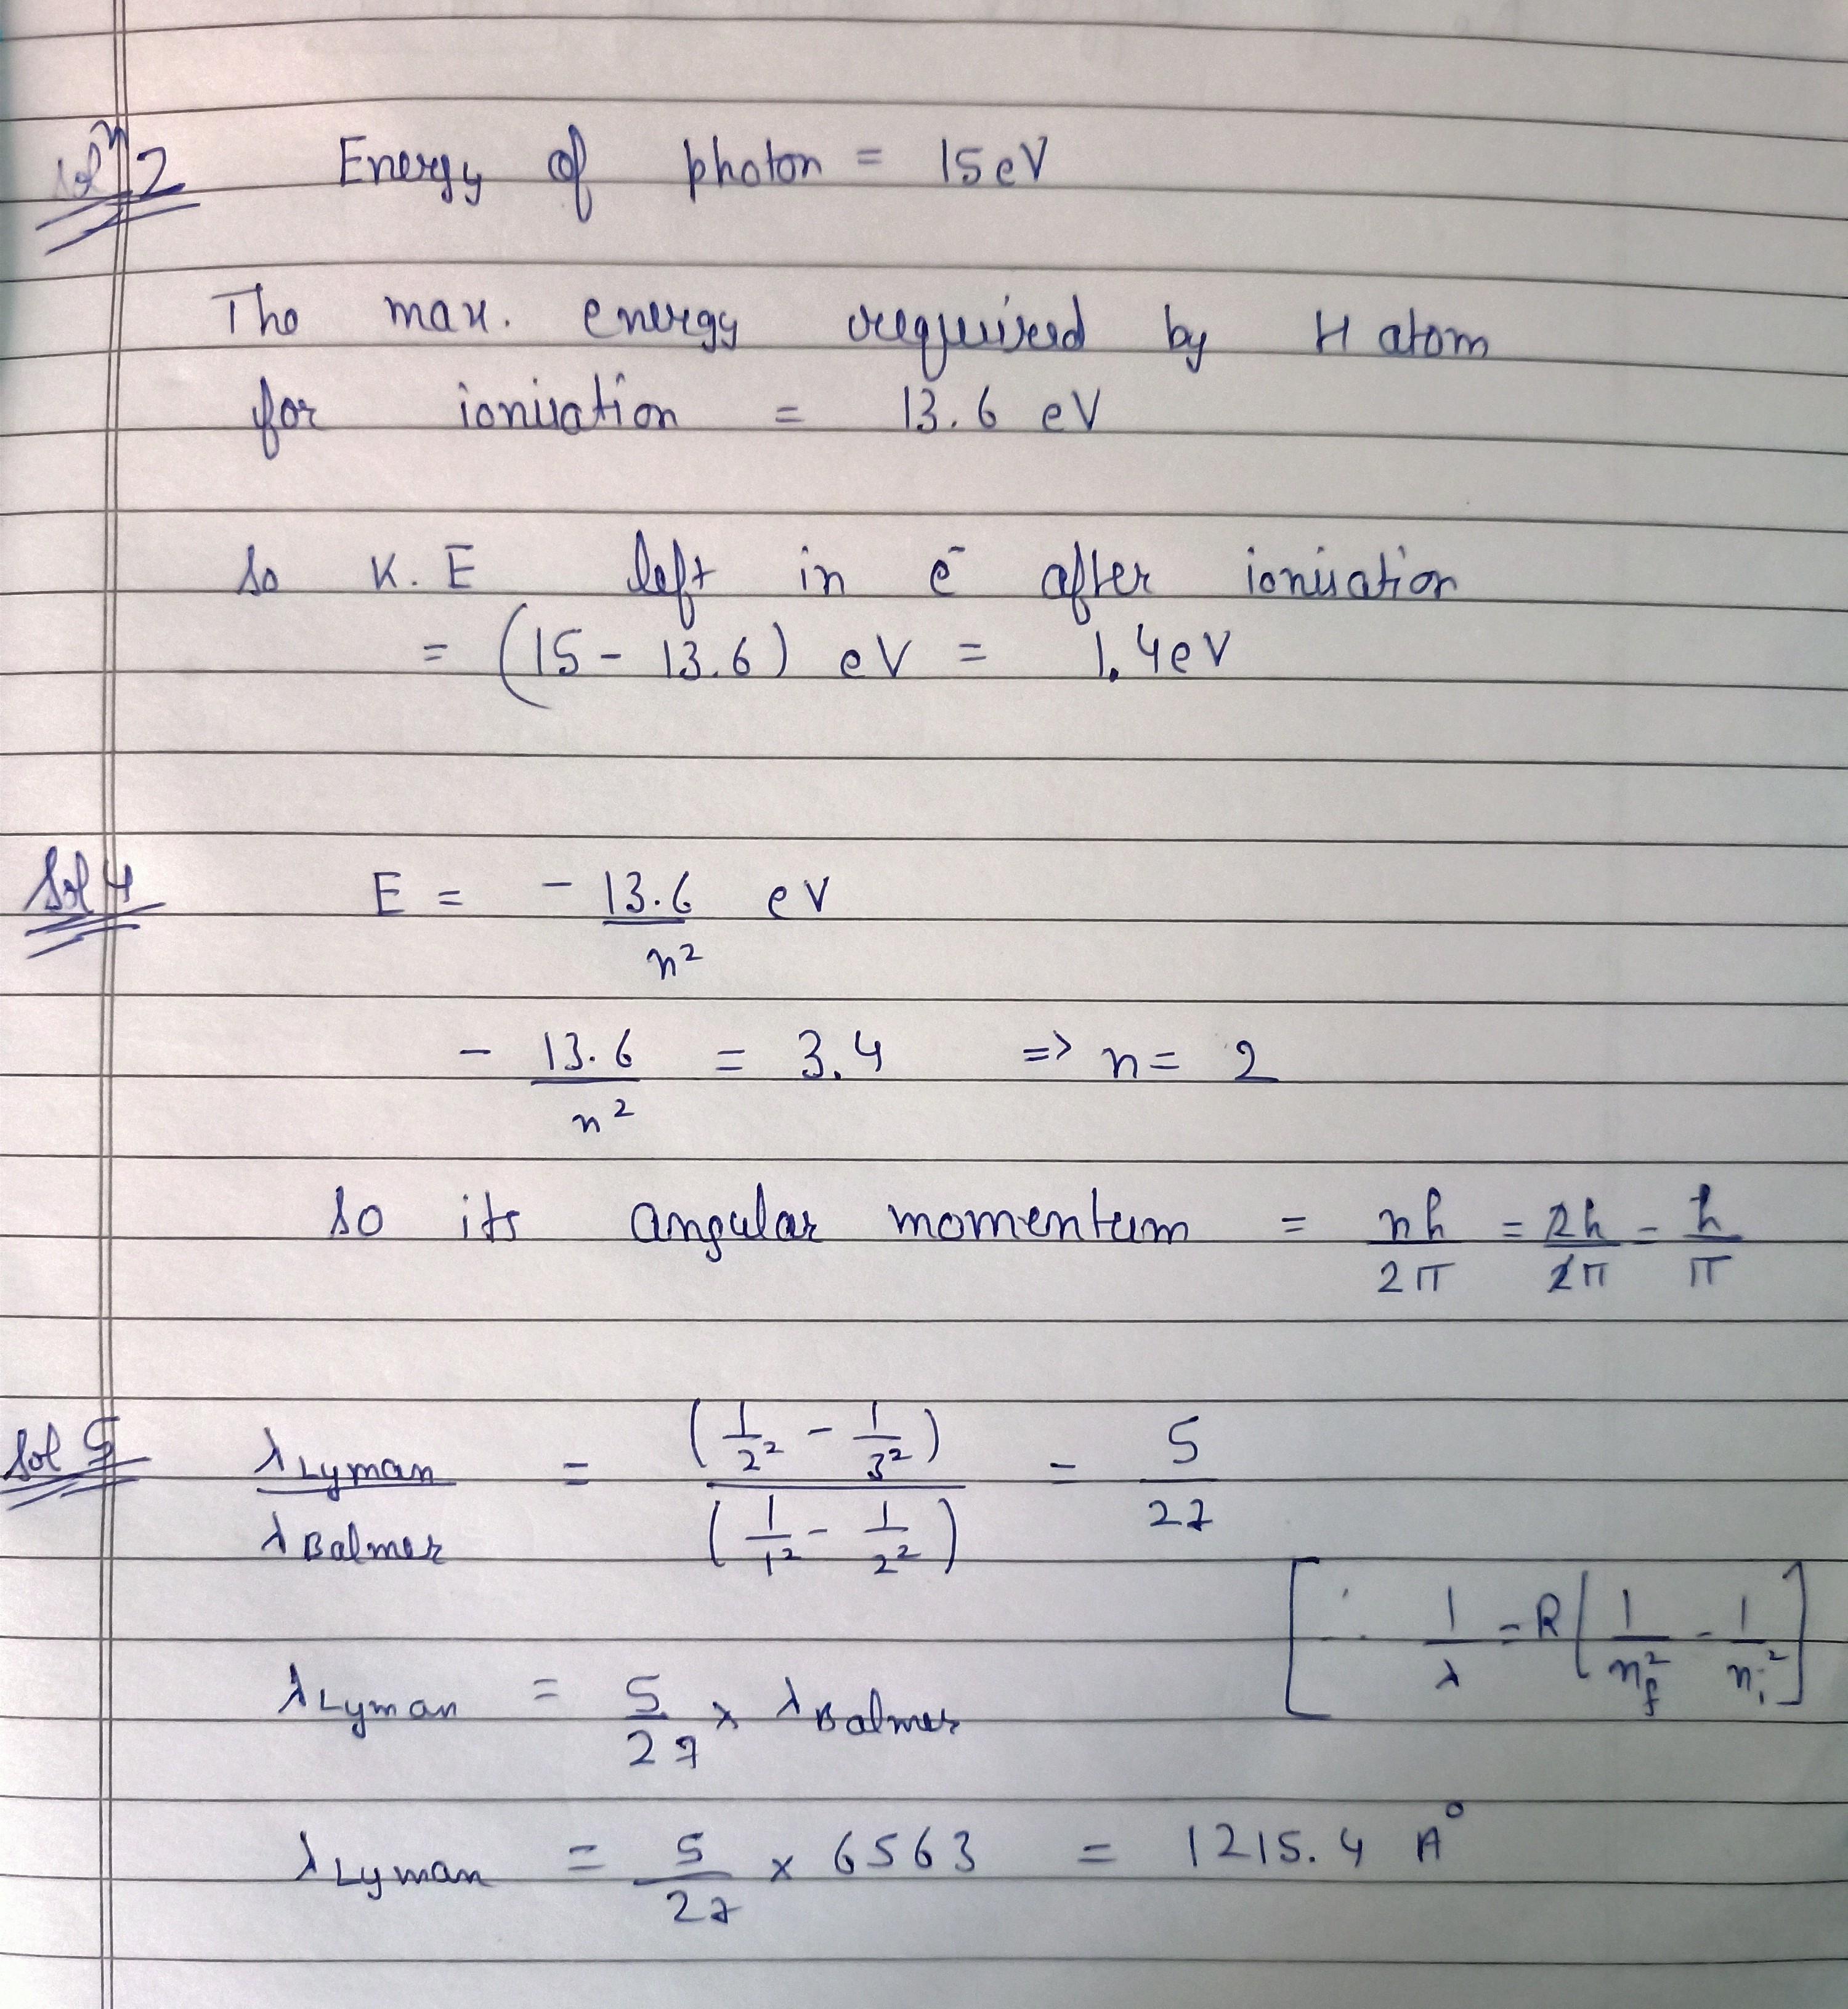 Solⁿ 2 Energy of photon = 15 eV
The max. energy required by H atom
for ionisation = 13.6 eV
So K.E left in e⁻ after ionisation
= (15 - 13.6) eV = 1.4 eV
Sol 4 E = - 13.6/n² eV
- 13.6/n² = 3.4 => n = 2
So its angular momentum = nh/2π = 2h/2π = h/π
Sol 5 λLyman/λBalmer = (1/2² - 1/3²)/(1/1² - 1/2²) = 5/27
[∵ 1/λ = R(1/nf² - 1/ni²]
λLyman = 5/27 x λBalmer
λLyman = 5/27 x 6563 = 1215.4 A°